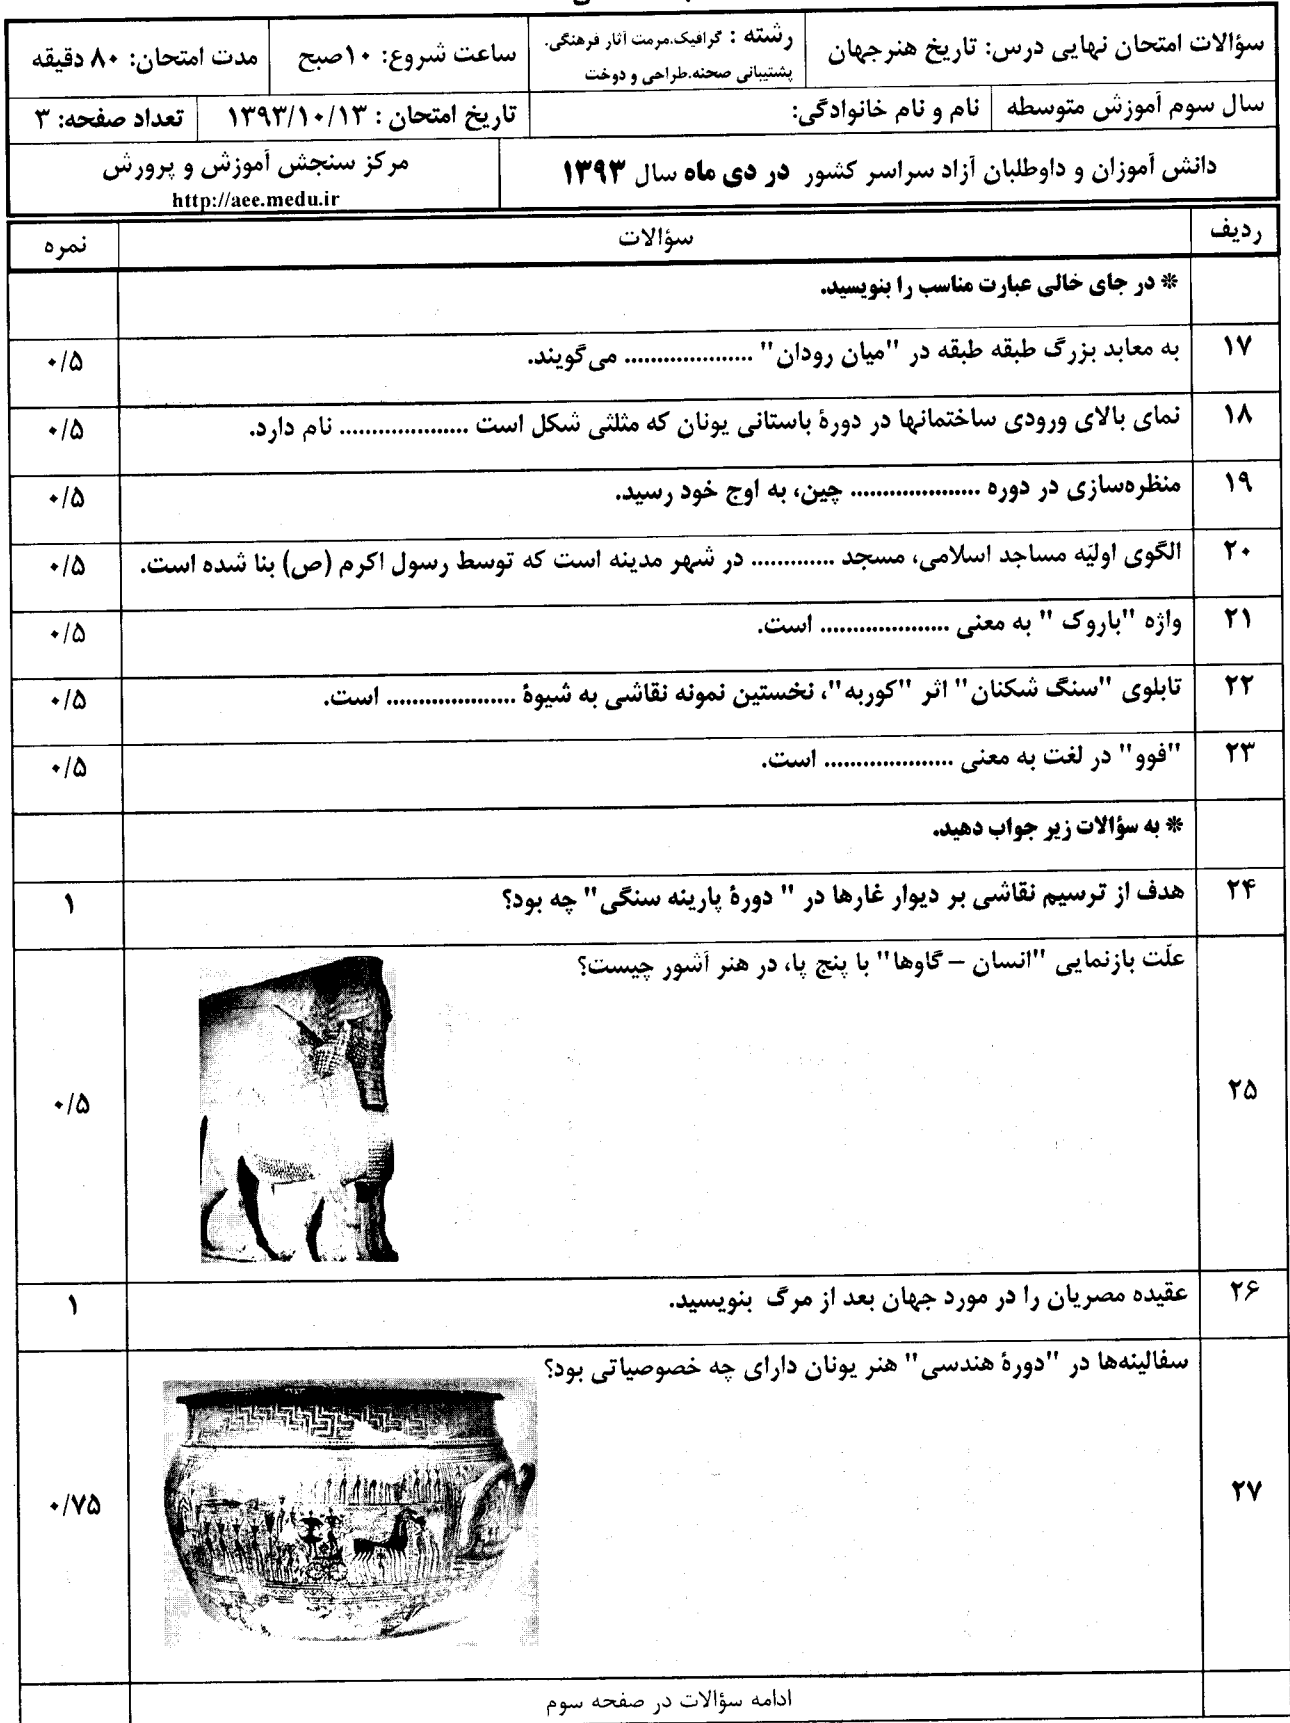 سؤالات امتحان نهایی درس: تاریخ هنرجهان
رشته : گرافیک.مرمت آثار فرهنگی.
پشتیبانی صحنه.طراحی و دوخت
ساعت شروع: ۱۰صبح
مدت امتحان: ۸۰ دقیقه
سال سوم آموزش متوسطه
نام و نام خانوادگی:
تاریخ امتحان : ۱۳۹۳/۱۰/۱۳
تعداد صفحه: ۳
دانش آموزان و داوطلبان آزاد سراسر کشور در دی ماه سال ۱۳۹۳
مرکز سنجش آموزش و پرورش
http://aee.medu.ir
ردیف سؤالات نمره
* در جای خالی عبارت مناسب را بنویسید.
۱۷ به معابد بزرگ طبقه طبقه در "میان رودان" .................... می‌گویند. ۰/۵
۱۸ نمای بالای ورودی ساختمانها در دورۀ باستانی یونان که مثلثی شکل است .................... نام دارد. ۰/۵
۱۹ منظره‌سازی در دوره .................... چین، به اوج خود رسید. ۰/۵
۲۰ الگوی اولیّه مساجد اسلامی، مسجد ............. در شهر مدینه است که توسط رسول اکرم (ص) بنا شده است. ۰/۵
۲۱ واژه "باروک " به معنی .................... است. ۰/۵
۲۲ تابلوی "سنگ شکنان" اثر "کوربه"، نخستین نمونه نقاشی به شیوۀ .................... است. ۰/۵
۲۳ "فوو" در لغت به معنی .................... است. ۰/۵
* به سؤالات زیر جواب دهید.
۲۴ هدف از ترسیم نقاشی بر دیوار غارها در " دورۀ پارینه سنگی" چه بود؟ ۱
۲۵ علّت بازنمایی "انسان – گاوها" با پنج پا، در هنر آشور چیست؟ ۰/۵
۲۶ عقیده مصریان را در مورد جهان بعد از مرگ بنویسید. ۱
۲۷ سفالینه‌ها در "دورۀ هندسی" هنر یونان دارای چه خصوصیاتی بود؟ ۰/۷۵
ادامه سؤالات در صفحه سوم